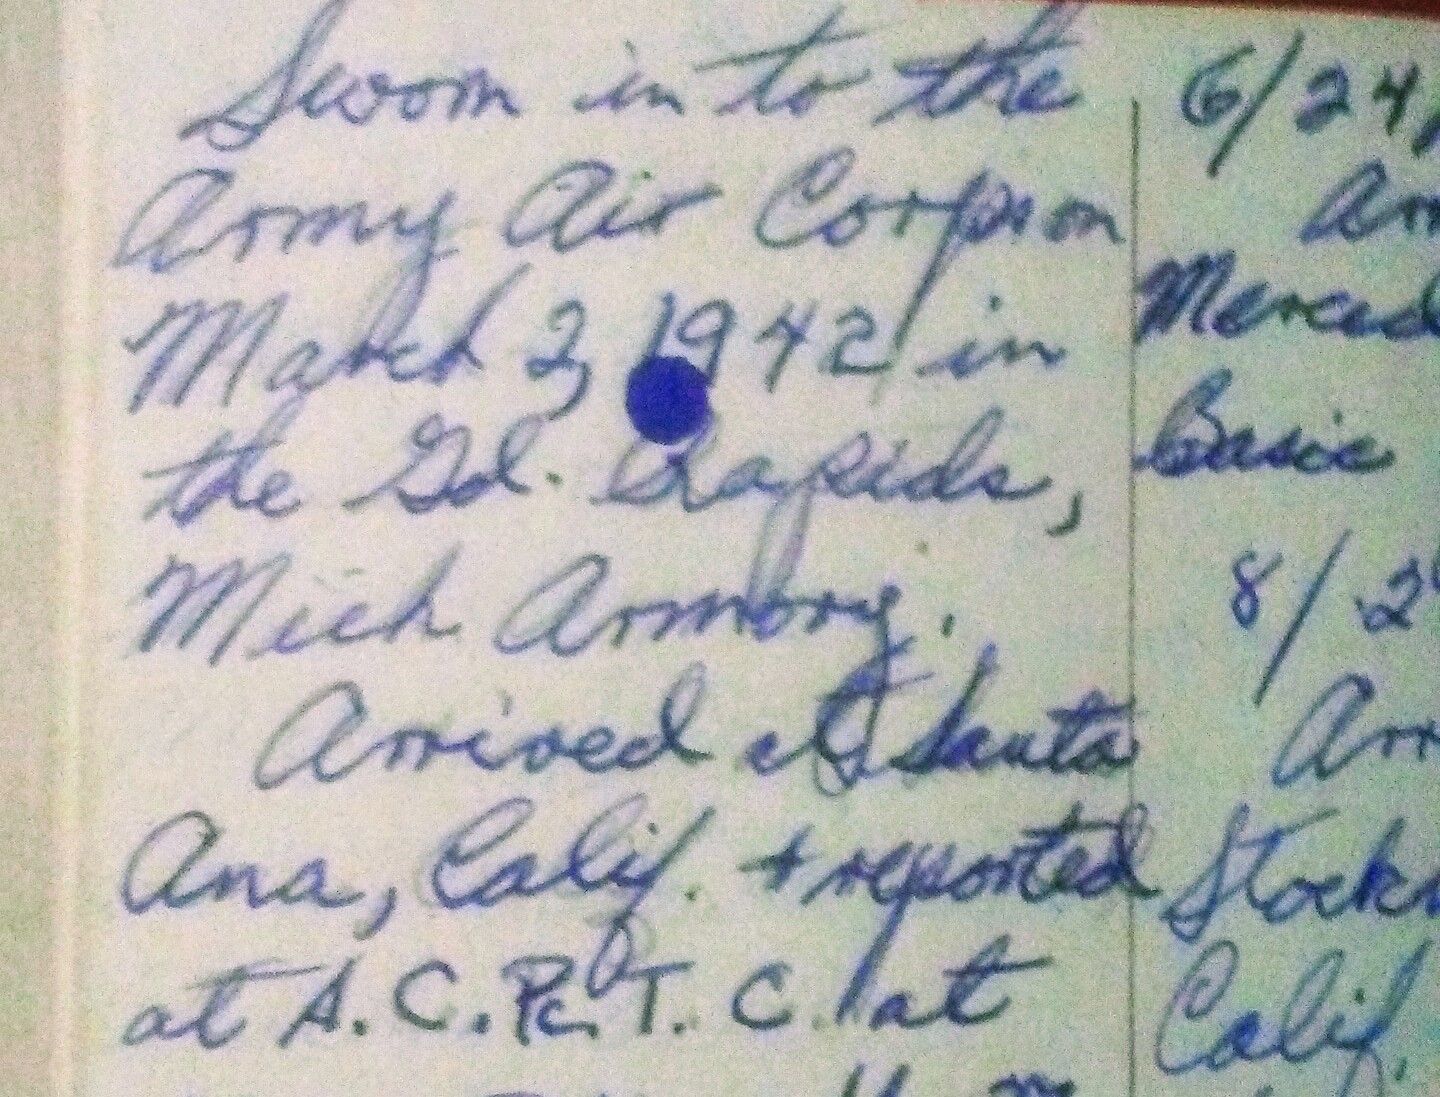 Sworn in to the
Army Air Corps on
March 2, 1942 in
the Gd. Rapids,
Mich Armory.
Arrived at Santa
Ana, Calif. + reported
at A. C. P. T. C. at
6/24
Arr
Merced
Basic
8/2
Arr
Stock
Calif.